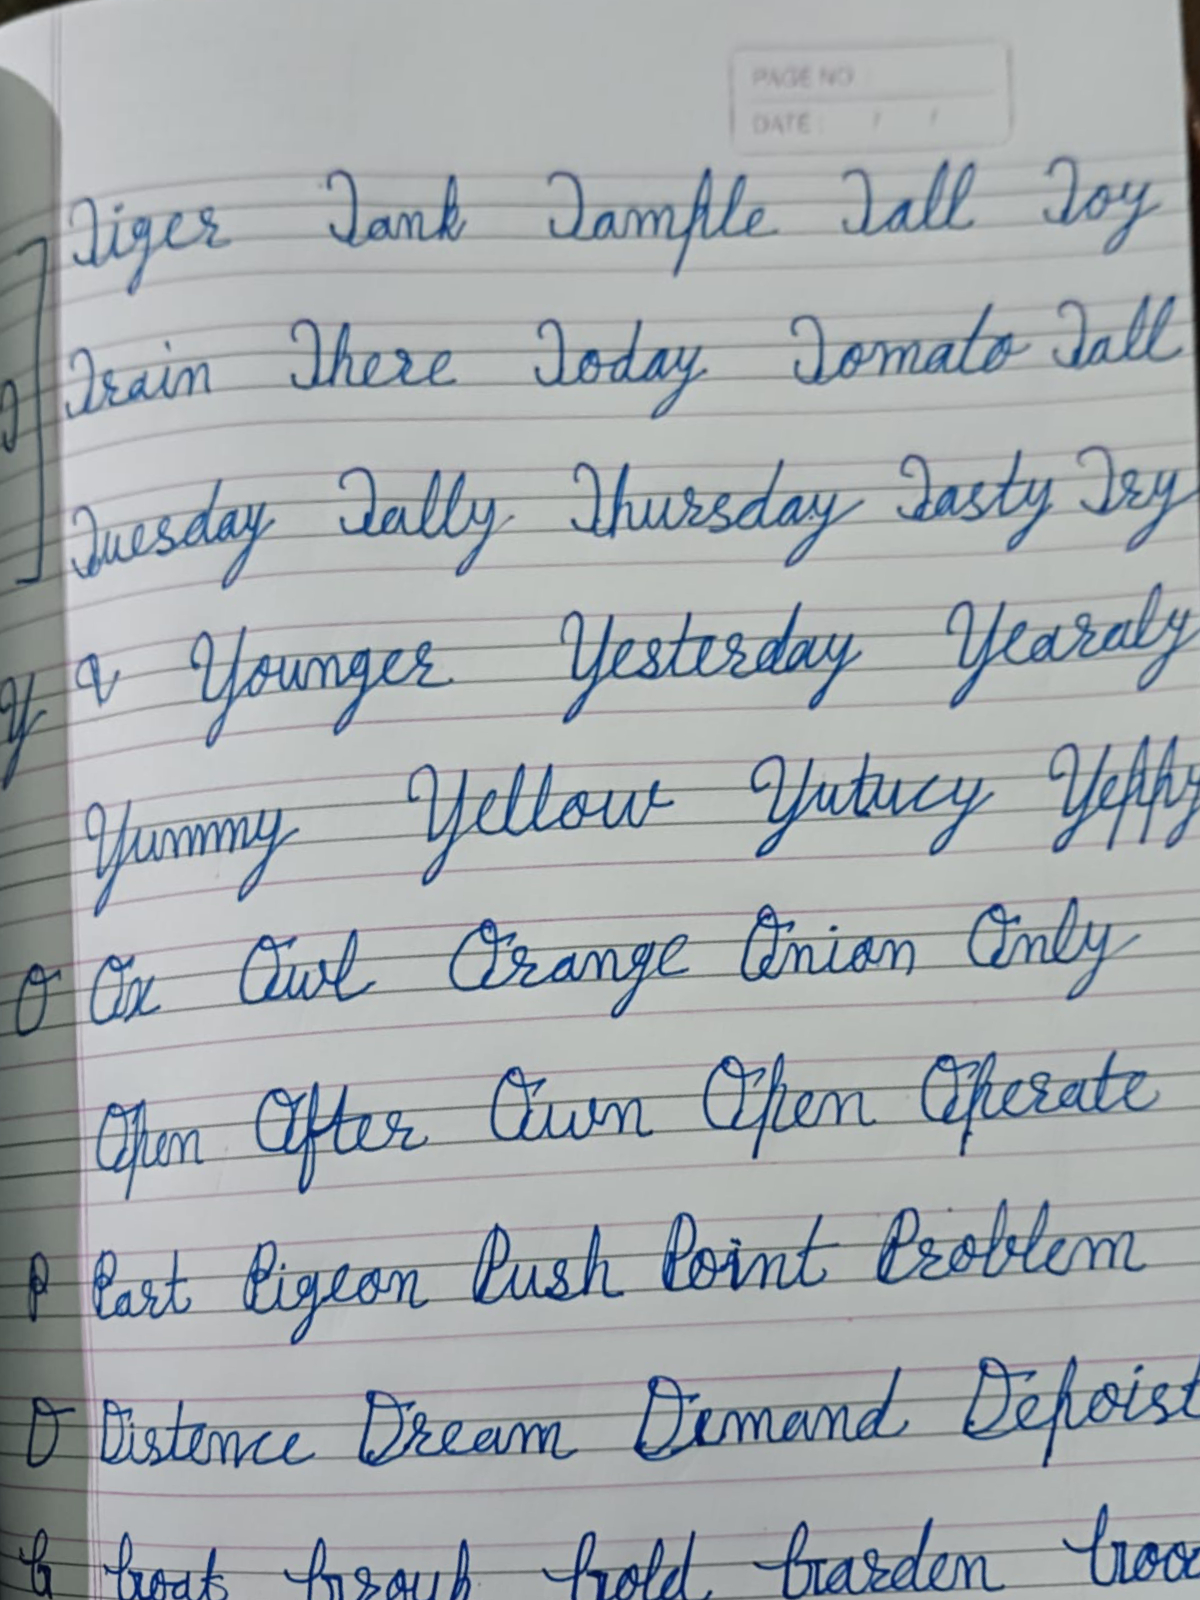 PAGE NO
DATE : / /
Tiger Tank Tample Tall Toy
T Train There Today Tomato Tall
Tuesday Tally Thursday Tasty Try
Y Younger Yesterday Yearaly
Yummy Yellow Yutucy Yeppy
O Ox Owl Orange Onion Only
Open Ofter Own Open Operate
P Part Pigeon Push Point Problem
D Distence Dream Demand Depoist
G Goat Group Gold Garden